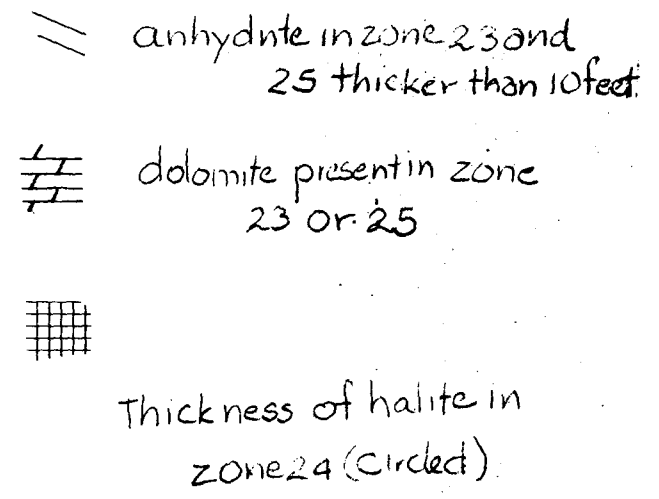 anhydrite in zone 23 and
25 thicker than 10 feet.
dolomite present in zone
23 or 25
Thickness of halite in
zone 24 (Circled)